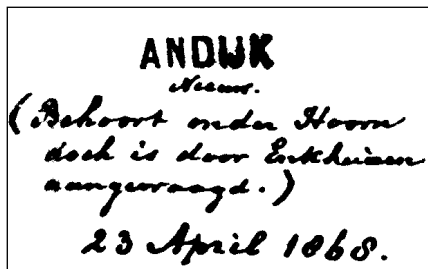 ANDIJK
Nieuw.
(Behoort onder Hoorn
doch is door Enkhuizen
aangevraagd.)
23 April 1868.